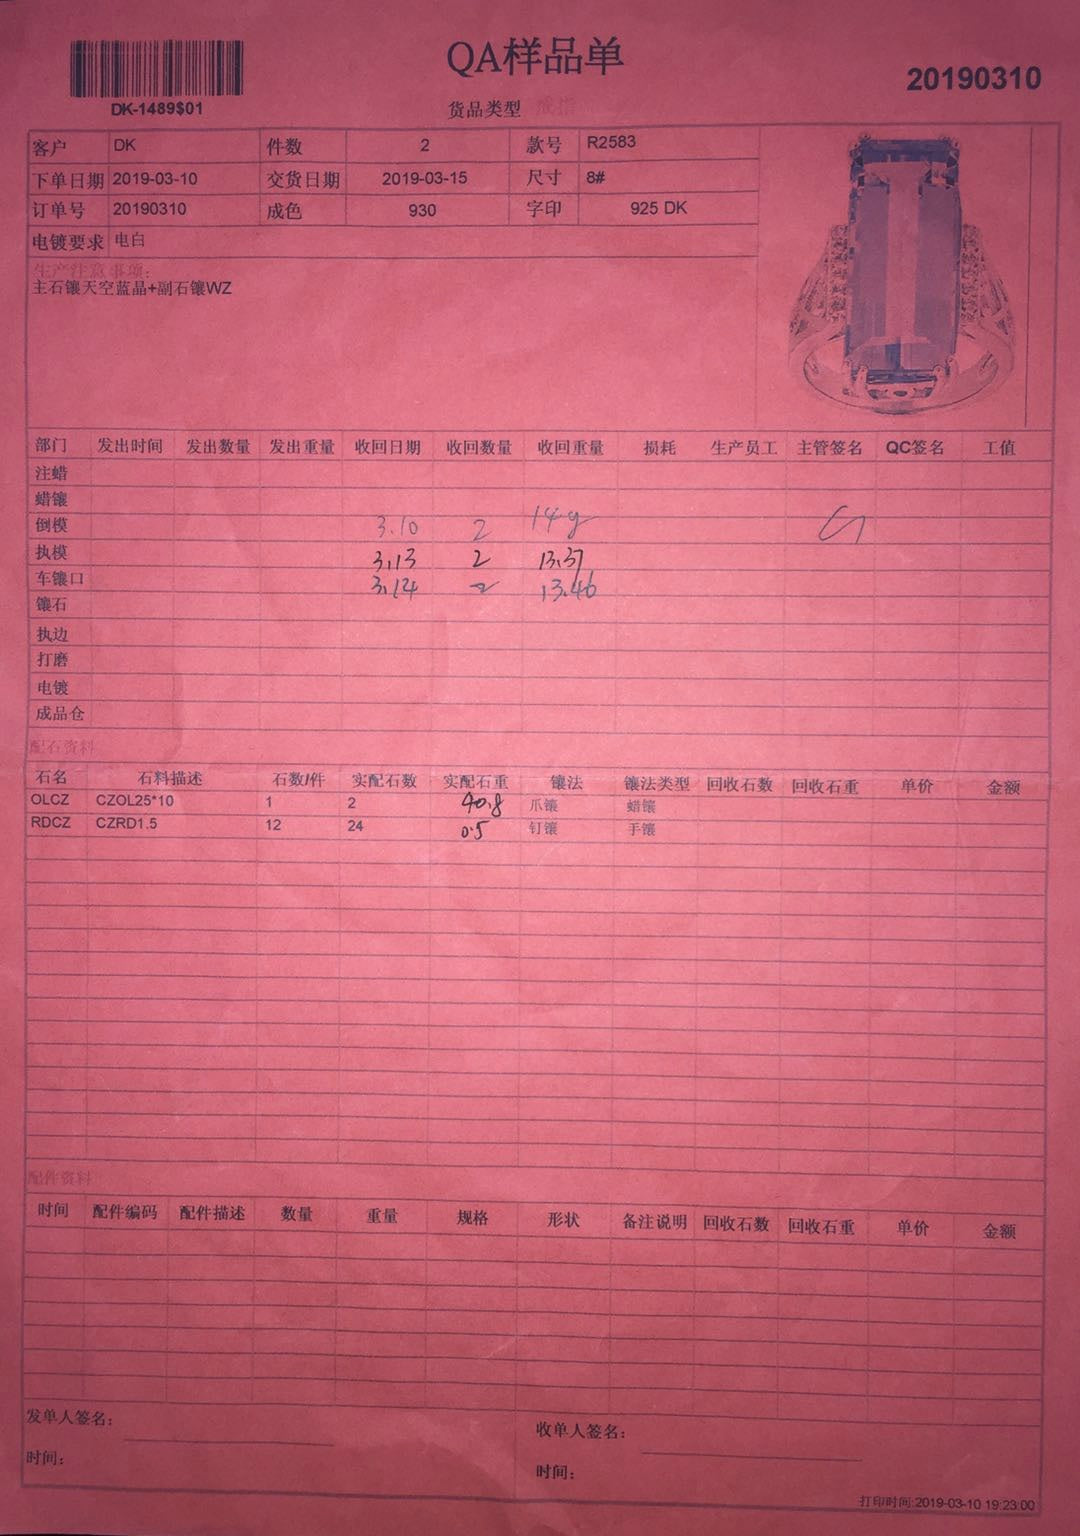 QA样品单
20190310
DK-1489$01
货品类型 戒指
客户 DK 件数 2 款号 R2583
下单日期 2019-03-10 交货日期 2019-03-15 尺寸 8#
订单号 20190310 成色 930 字印 925 DK
电镀要求 电白
生产注意事项:
主石镶天空蓝晶+副石镶WZ
部门 发出时间 发出数量 发出重量 收回日期 收回数量 收回重量 损耗 生产员工 主管签名 QC签名 工值
注蜡
蜡镶
倒模 3.10 2 14g
执模 3.13 2 13.37
车镶口 3.14 2 13.46
镶石
执边
打磨
电镀
成品仓
配石资料
石名 石料描述 石数/件 实配石数 实配石重 镶法 镶法类型 回收石数 回收石重 单价 金额
OLCZ CZOL25*10 1 2 40.8 爪镶 蜡镶
RDCZ CZRD1.5 12 24 0.5 钉镶 手镶
配件资料
时间 配件编码 配件描述 数量 重量 规格 形状 备注说明 回收石数 回收石重 单价 金额
发单人签名: 收单人签名:
时间: 时间:
打印时间:2019-03-10 19:23:00